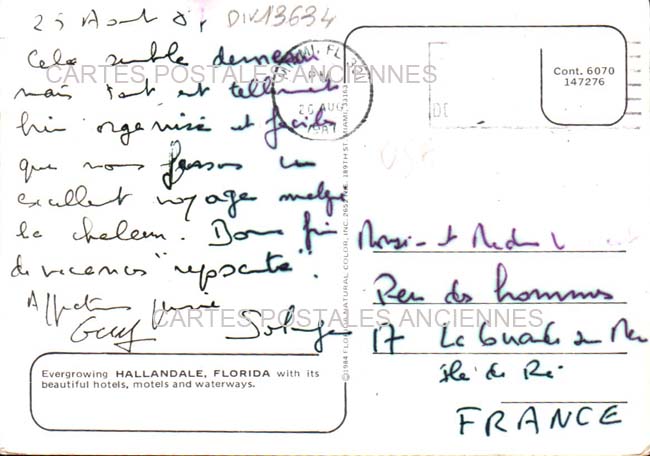 25 Août 87 DIV13634
Cela semble démesuré
mais tout est tellement
bien organisé et facile
que nous faisons un
excellent voyage malgré
la chaleur. Bonne fin
de vacances "reposante".
Affectueusement
Guy Solange
CARTES POSTALES ANCIENNES
CARTES POSTALES ANCIENNES
Evergrowing HALLANDALE, FLORIDA with its
beautiful hotels, motels and waterways.
©1984 FLORIDA NATURAL COLOR, INC. 189TH ST. MIAMI,
MIAMI, FL
PM
26 AUG
Cont. 6070
147276
Monsieur et Madame
Rue des hommes
17 La Couarde sur Mer
île de Ré
FRANCE